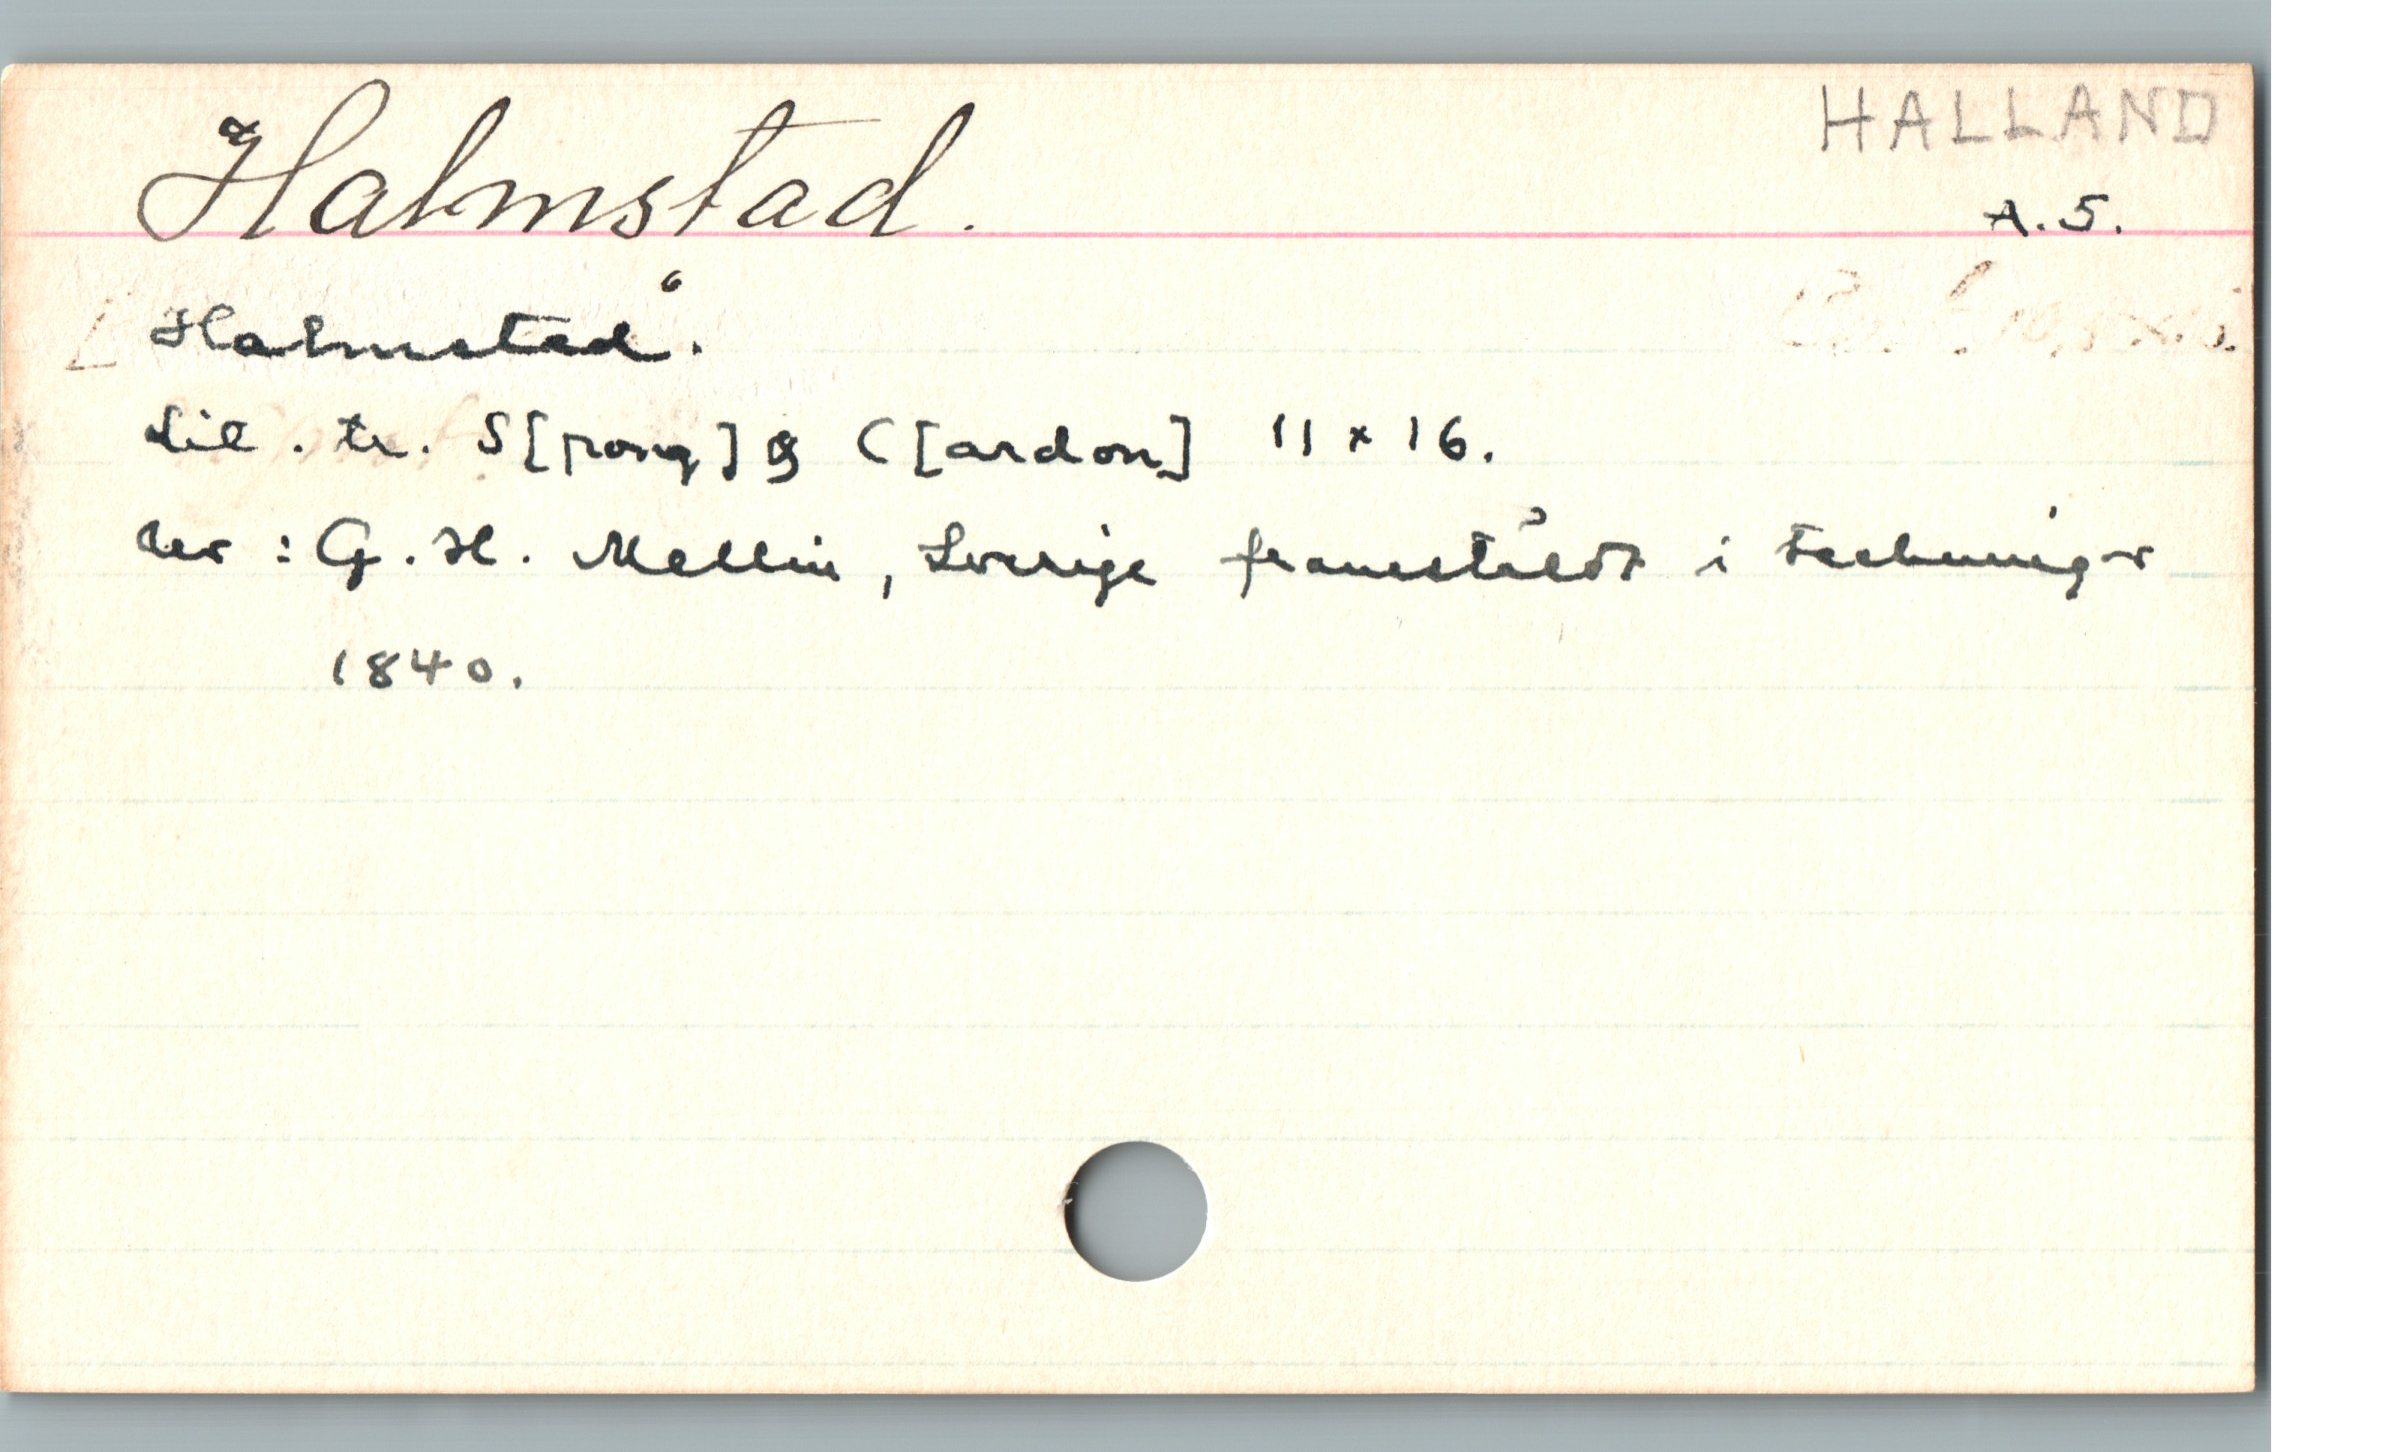 Halmstad.
HALLAND
A. 5.
Halmstad.
Lit. tr. S[pong] & C[ardon] 11 x 16.
Ur: G. H. Mellin, Sverige framstäldt i teckningar
1840.